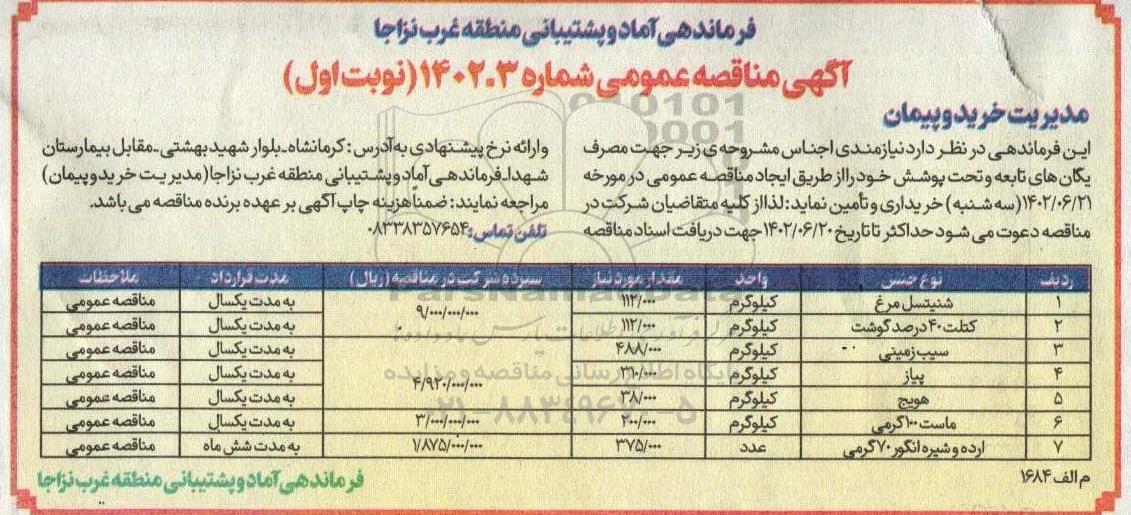 فرماندهی آماد و پشتیبانی منطقه غرب نزاجا
آگهی مناقصه عمومی شماره ۱۴۰۲.۳ (نوبت اول)
مدیریت خرید و پیمان
این فرماندهی در نظر دارد نیازمندی اجناس مشروحه‌ی زیر جهت مصرف
یکان های تابعه و تحت پوشش خود را از طریق ایجاد مناقصه عمومی در مورخه
۱۴۰۲/۰۶/۲۱ (سه شنبه) خریداری و تأمین نماید: لذا از کلیه متقاضیان شرکت در
مناقصه دعوت می شود حداکثر تا تاریخ ۱۴۰۲/۰۶/۲۰ جهت دریافت اسناد مناقصه
و ارائه نرخ پیشنهادی به آدرس: کرمانشاه ـ بلوار شهید بهشتی ـ مقابل بیمارستان
شهدا ـ فرماندهی آماد و پشتیبانی منطقه غرب نزاجا (مدیریت خرید و پیمان)
مراجعه نمایند: ضمناً هزینه چاپ آگهی بر عهده برنده مناقصه می باشد.
تلفن تماس: ۰۸۳۳۸۳۵۷۶۵۴
ردیف نوع جنس واحد مقدار مورد نیاز سپرده شرکت در مناقصه (ریال) مدت قرارداد ملاحظات
۱ شنیتسل مرغ کیلوگرم ۱۱۲/۰۰۰ ۹/۰۰۰/۰۰۰/۰۰۰ به مدت یکسال مناقصه عمومی
۲ کتلت ۴۰ درصد گوشت کیلوگرم ۱۱۲/۰۰۰ به مدت یکسال مناقصه عمومی
۳ سیب زمینی کیلوگرم ۴۸۸/۰۰۰ ۴/۹۲۰/۰۰۰/۰۰۰ به مدت یکسال مناقصه عمومی
۴ پیاز کیلوگرم ۳۱۰/۰۰۰ به مدت یکسال مناقصه عمومی
۵ هویج کیلوگرم ۳۸/۰۰۰ به مدت یکسال مناقصه عمومی
۶ ماست ۱۰۰ گرمی کیلوگرم ۲۰۰/۰۰۰ ۳/۰۰۰/۰۰۰/۰۰۰ به مدت یکسال مناقصه عمومی
۷ ارده و شیره انگور ۷۰ گرمی عدد ۳۷۵/۰۰۰ ۱/۸۷۵/۰۰۰/۰۰۰ به مدت شش ماه مناقصه عمومی
م الف ۱۶۸۴
فرماندهی آماد و پشتیبانی منطقه غرب نزاجا
ParsNamadData
پایگاه اطلاع رسانی مناقصه و مزایده
۰۲۱-۸۸۳۴۹۶۷۰-۵